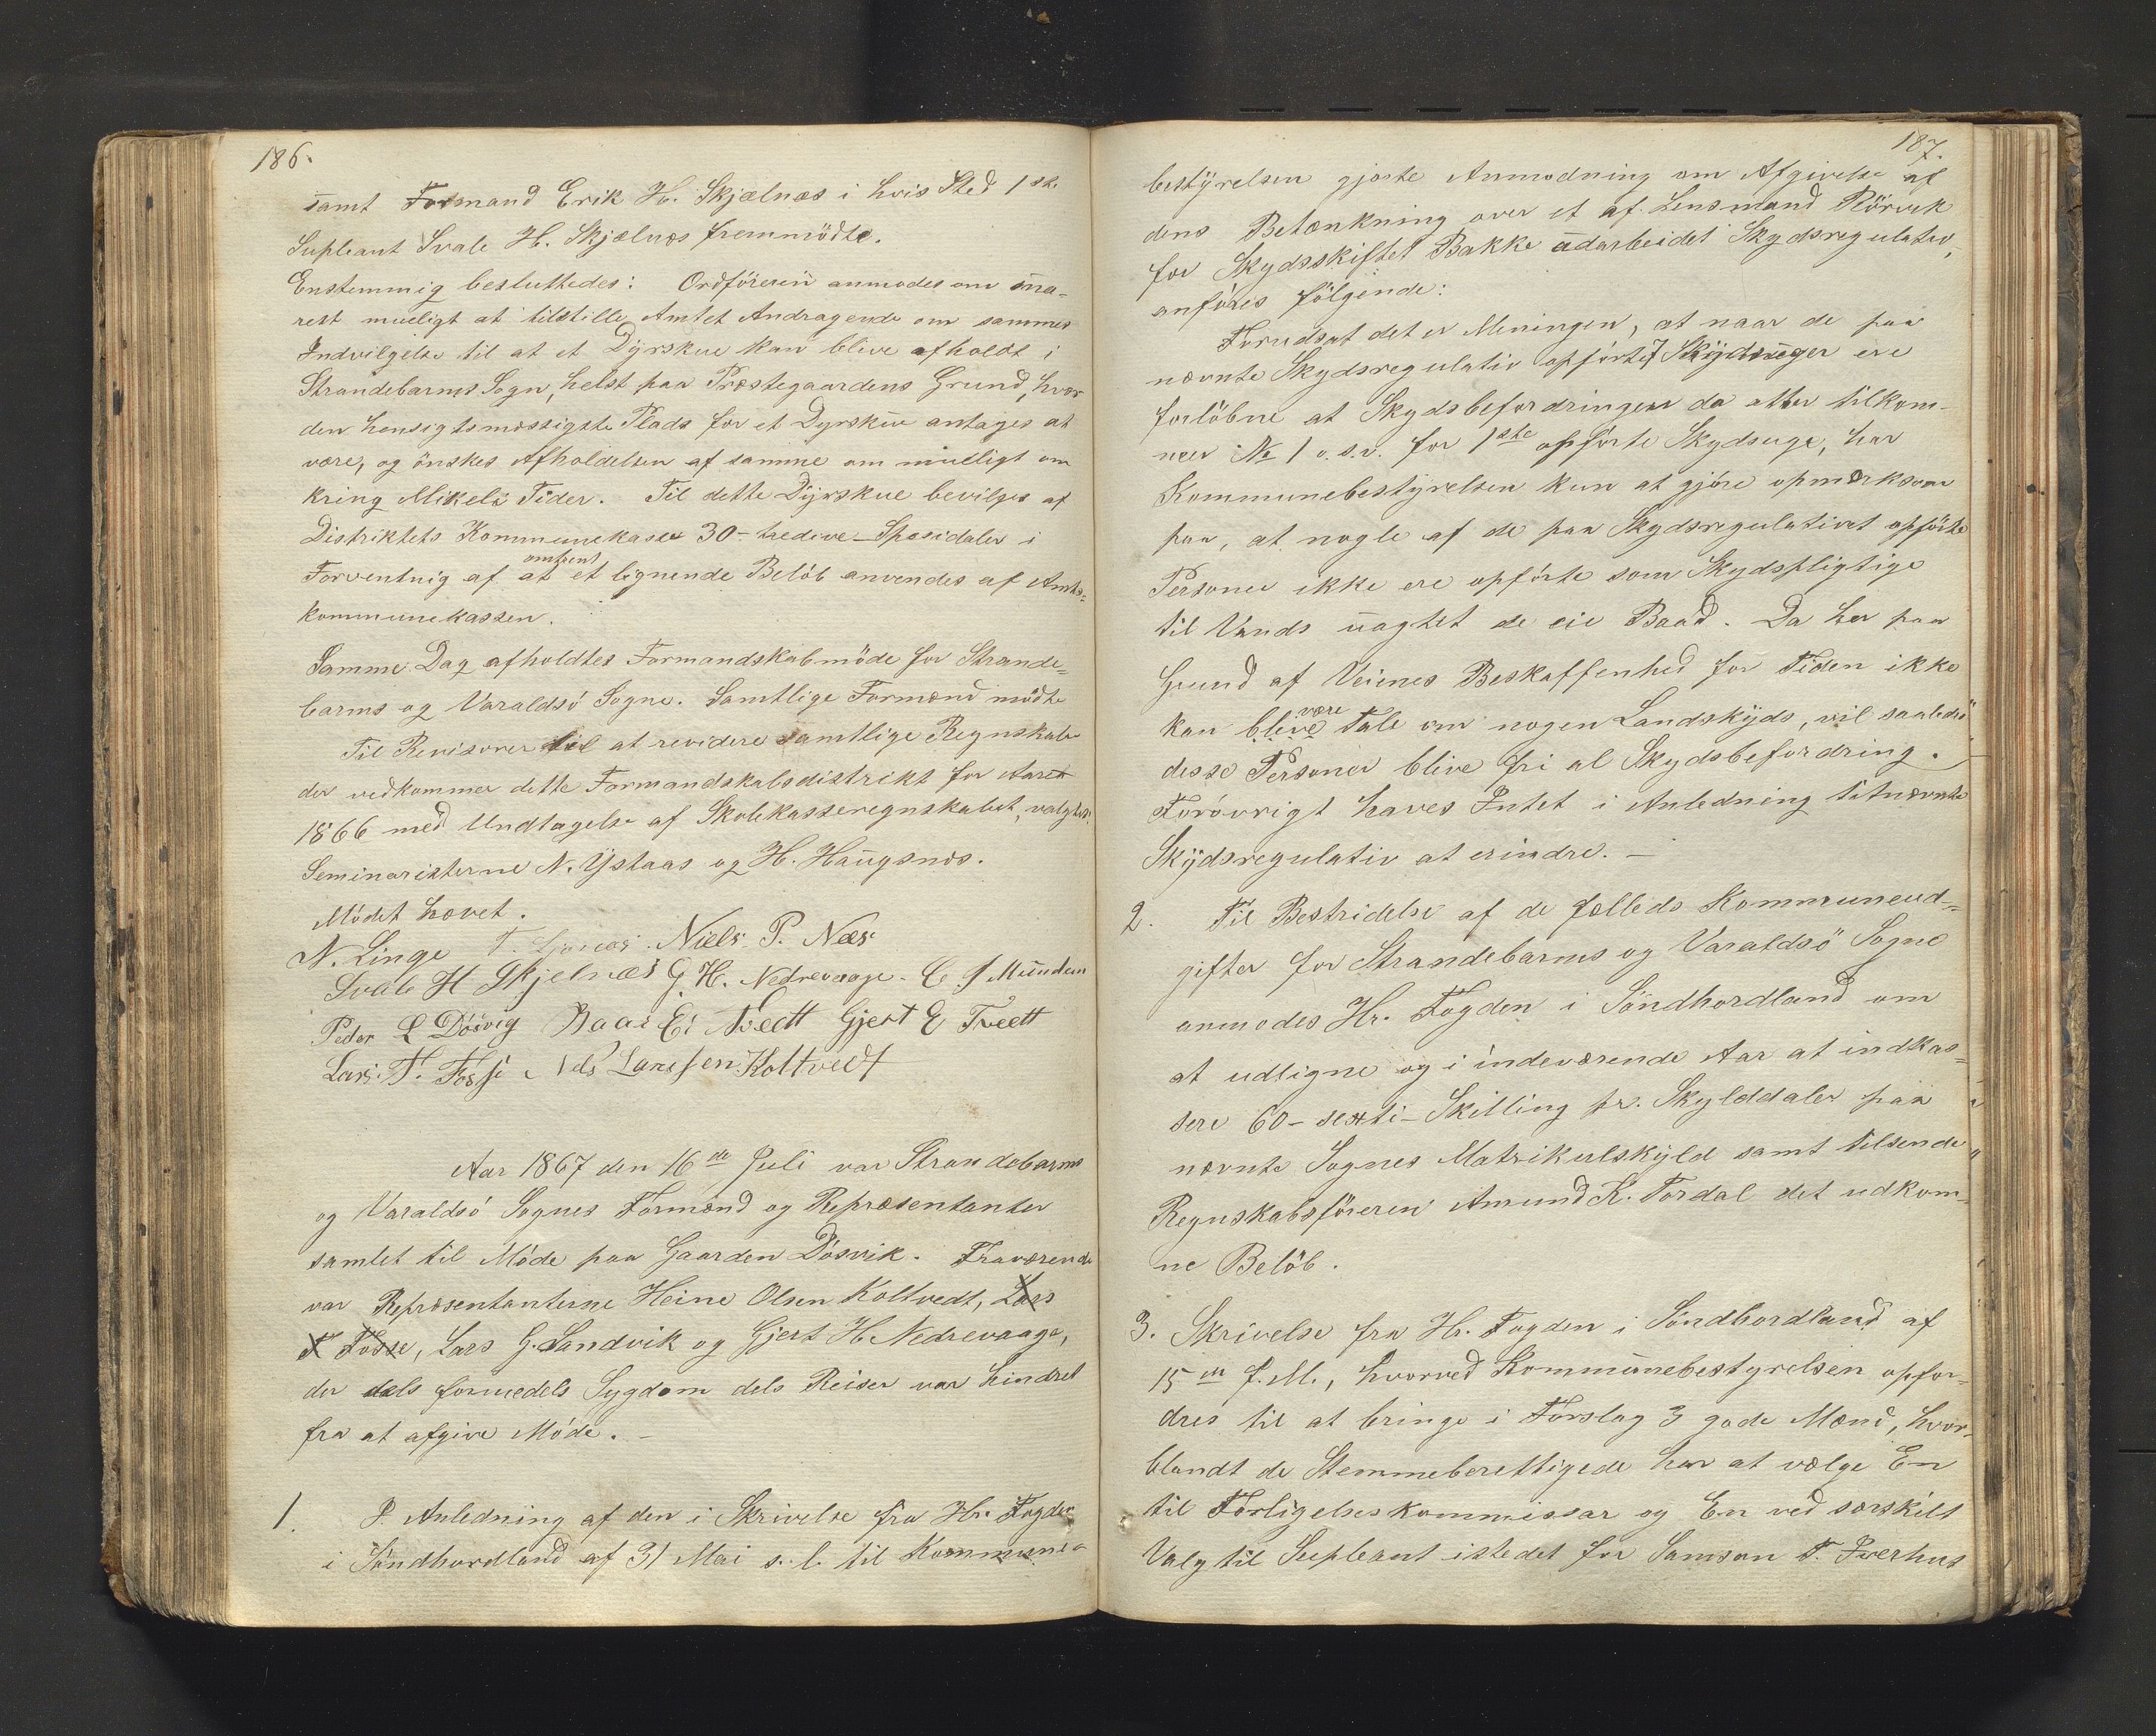 186.
samt Formand Erik H. Skjælnæs i hvis Sted 1ste
Supleant Svale H. Skjælnæs fremmödte.
Enstemmig besluttedes: Ordföreren anmodes om sna-
rest mueligt at tilstille Amtet Andragende om sammes
Indvilgelse til at et Dyrskue kan blive afholdt i
Strandebarms Sogn, helst paa Præstegaardens Grund, hvor
den hensigtsmæssigste Plads for et Dyrskue antages at
være, og önskes Afholdelsen af samme om mueligt om
kring Mikels Tider. Til dette Dyrskue bevilges af
Distriktets Kommunekasse 30 - tredive - Spesidaler i
Forventnig af at omtrent et lignende Belöb anvendes af Amts-
kommunekassen.
Samme Dag afholdtes Formandskabmöde for Strande-
barms og Varaldsö Sogne. Samtlige Formænd mödte
Til Revisorer til at revidere samtlige Regnskaber
der vedkommer dette Formandskabsdistrikt for Aaret
1866 med Undtagelse af Skolekasseregnskabet, valgtes:
Seminaristerne N. Ystaas og H. Haugsnæs.
Mödet hævet.
N. Linge T. Niels P. Næs
Svale H Skjelnæs G. H. Nedrevaage - C. J Munden
Peder L Dösvig Baar E: Nvedt Gjert E Tvedt
Lars. T. Fosse Nels Larssen Koltvedt
Aar 1867 den 16de Juli var Strandebarms
og Varaldsö Sognes Formænd og Repræsentanter
samlet til Möde paa Gaarden Dösvik. Fraværende
var Repræsentanterne Heine Olsen Koltvedt, Lars
T Fosse, Lars G. Sandvik og Gjert H. Nedrevaage,
der dels formedels Sygdom dels Reiser var hindret
fra at afgive Möde. -
1. I Anledning af den i Skrivelse fra Hr. Fogden
i Söndhordland af 31 Mai s. l. til Kommune-
187.
bestyrelsen gjorte Anmodning om Afgivelse af
dens Betænkning over et af Lensmand Rörvik
for Skydsskiftet Bakke udarbeidet Skydsregulativ,
anföres fölgende:
Forudsat det er Meningen, at naar de paa
nævnte Skydsregulativ opförte 7 Skydsuger ere
forlöbne at Skydsbefordringen da atter tilkom-
mer No 1 o. s. v. for 1ste opförte Skydsuge, har
Kommunebestyrelsen kun at gjöre opmærksom
paa, at nogle af de paa Skydsregulativet opförte
Personer ikke ere opförte som Skydspligtige
til Vands uagtet de eie Baad. Da her paa
Grund af Veienes Beskaffenhed for Tiden ikke
kan blive være Tale om nogen Landskyds, vil saaledes
desse Personer blive fri al Skydsbefordring.
Foröovrigt haves Intet i Anledning titnævnte
Skydsregulativ at erindre. -
2. Til Bestridelse af de fælleds Kommuneud-
gifter for Strandebarms og Varaldsö Sogne
anmodes Hr. Fogden i Söndhordland om
at udligne og i indeværende Aar at indkas-
sere 60 - sexti - Skilling pr. Skylddaler paa
nævnte Sognes Matrikulskyld samt tilsende
Regnskabsföreren Amund K. Tordal det udkom-
ne Belöb.
3. Skrivelse fra Hr. Fogden i Söndhordland af
15de f. M., hvorved Kommunebestyrelsen opfor-
dres til at bringe i Forslag 3 gode Mænd, hvor-
blandt de Stemmeberettigede har at vælge En
til Forligelseskommissær og En ved særskilt
Valg til Supleant istedet for Samson T. Iverhus